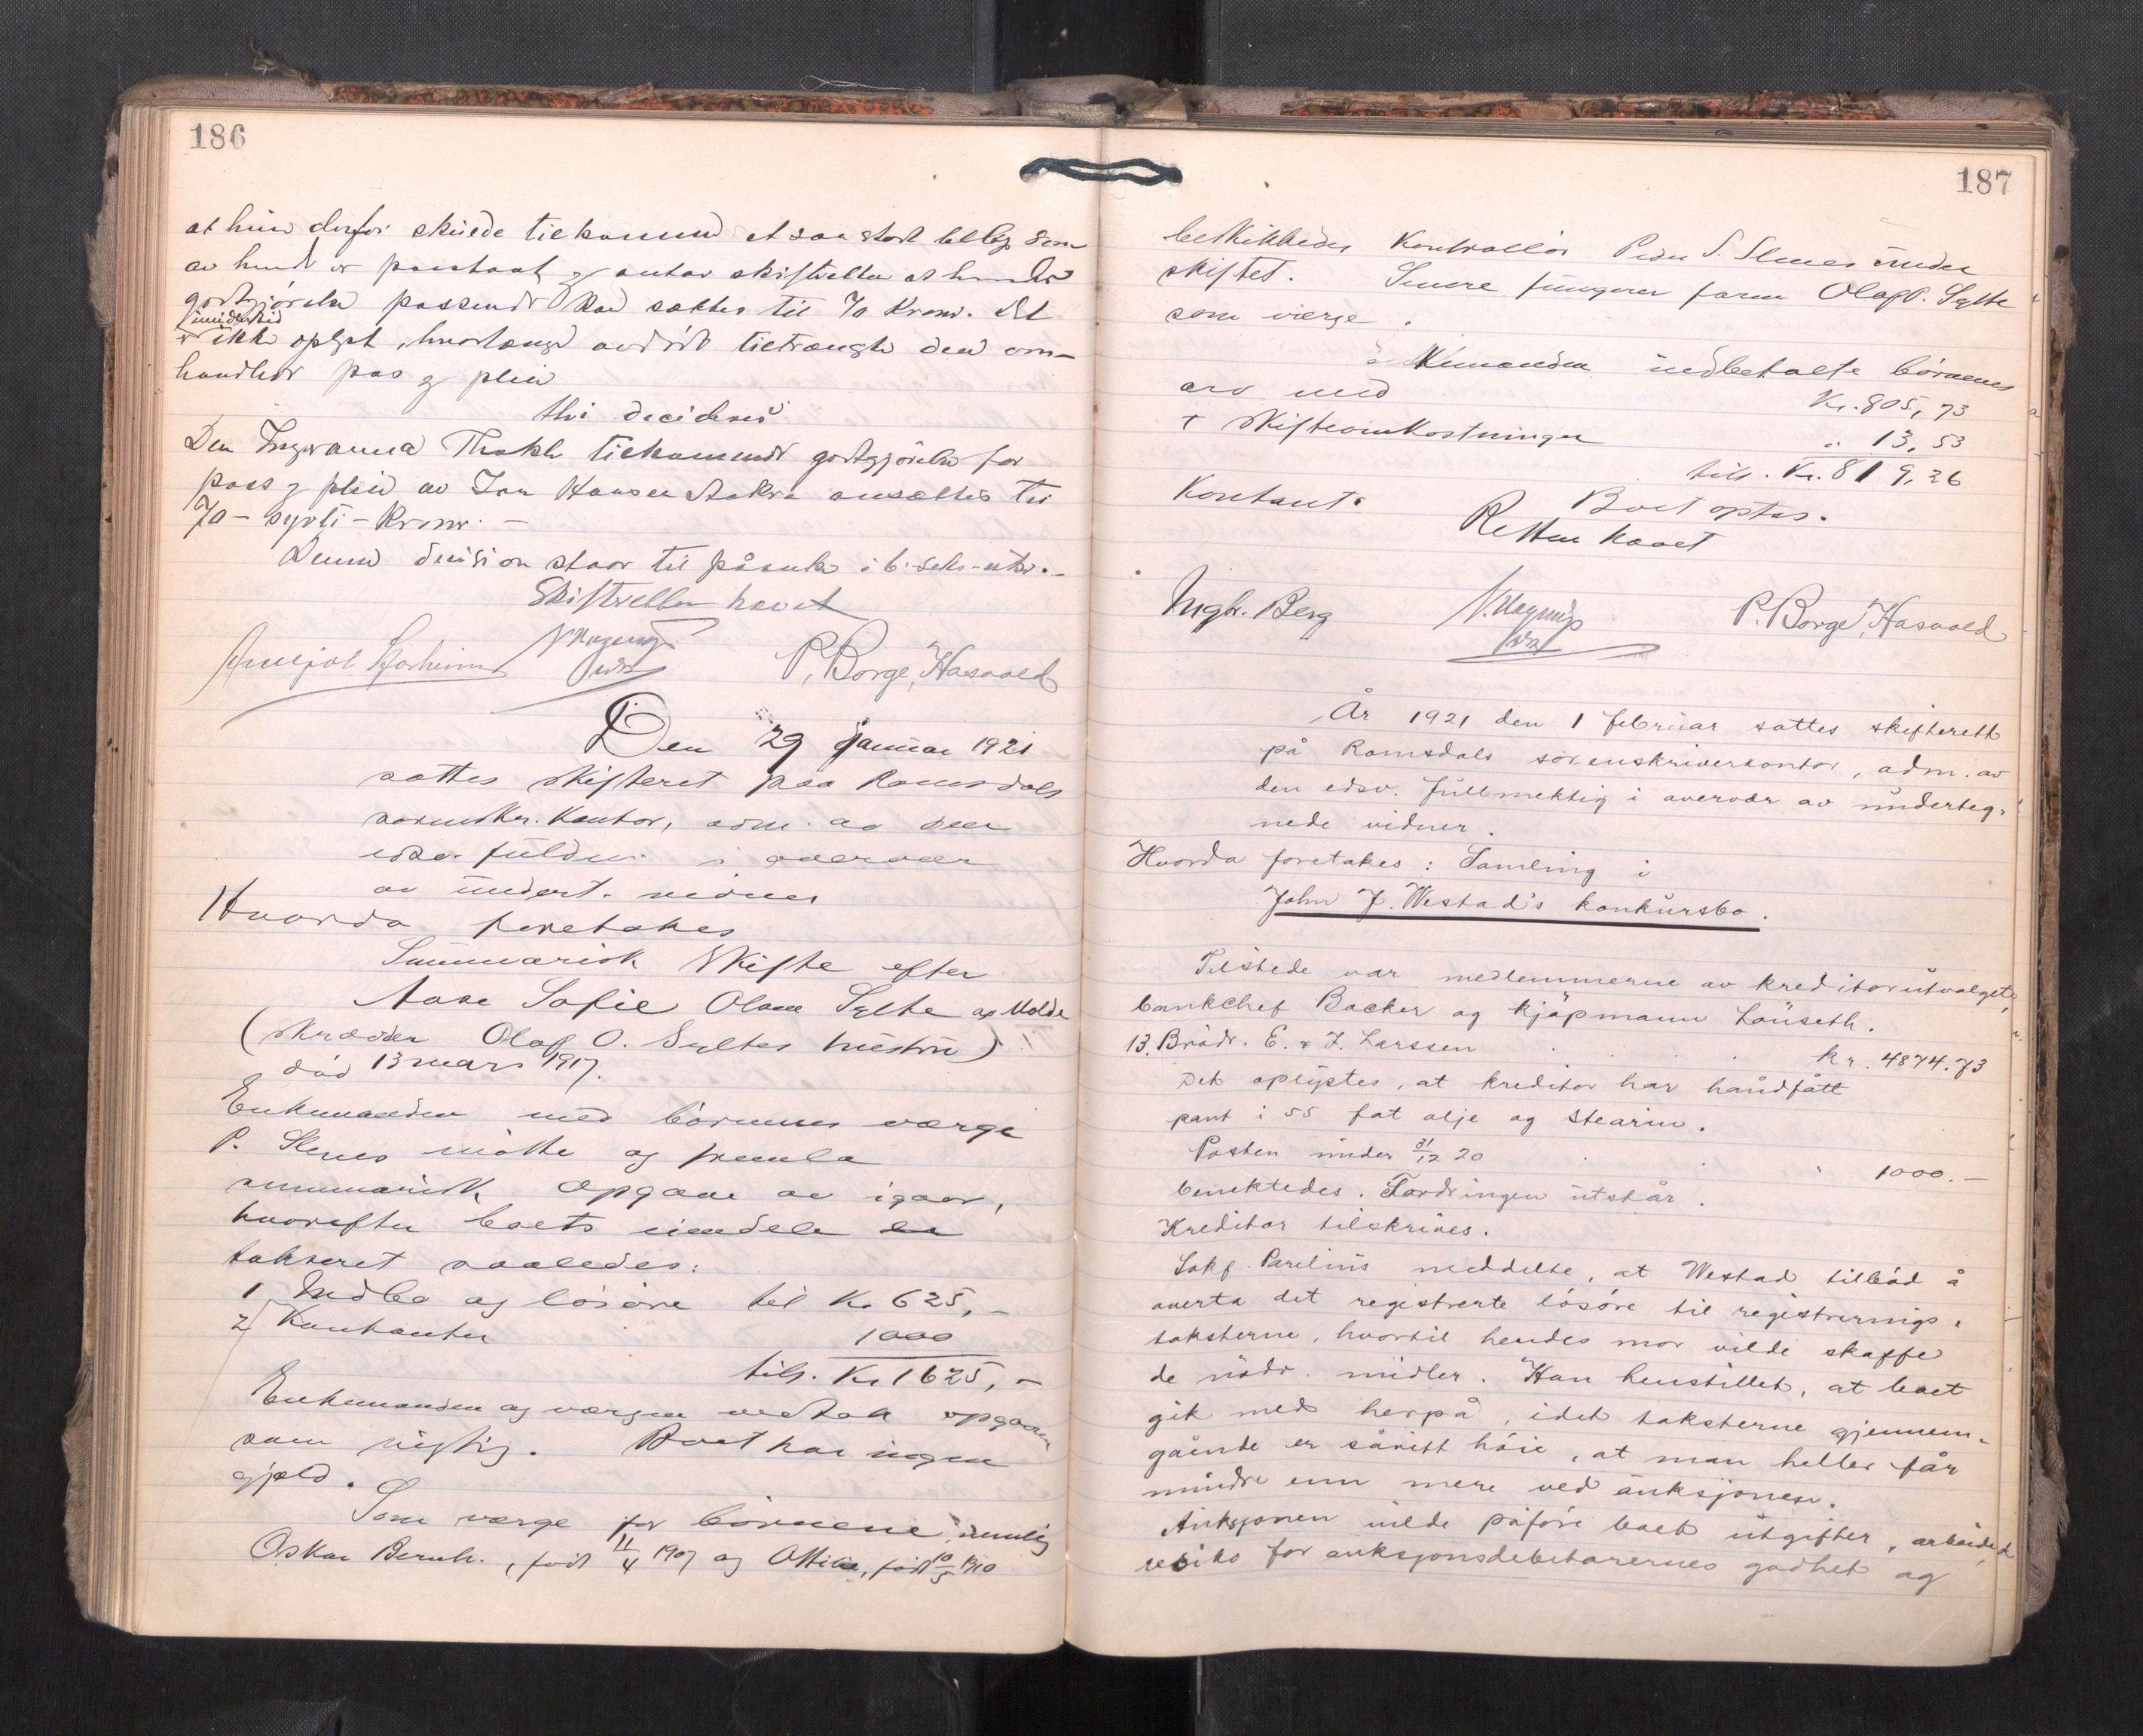 186
at hun derfor skulde tilkomme et saa stort beløp som
av hende er paastaat og antar skifteretten at hendes
godtgjørelse passende kan sættes til 70 Kroner. Det
imidlertid
er ikke oplyst, hvorlænge avdøde tiltrængte den om-
handler pas og pleie
thi decideres
Den Ingvarna tilkommende godtgjørelse for
pass og pleie av Jon Hansen Aakre ansættes til
70 - sytti - Kroner. -
Denne decision staar til påanke i 6-seks-uker. -
Skifteretten hævet
P. Borge, Hasvold
Den 29 januar 1921
sattes skifteret paa Romsdals
sorenskr. Kontor, adm. av den
edsv. fuldm. i overvær
av undert. vidner
Hvorda foretakes
Summarisk Skifte efter
Aase Sofie Olsen Sylte av Molde
(Skrædder Olaf O. Syltes hustru)
død 13 mars 1917.
Enkemanden med børnenes værge
P. Slenes møtte og fremla
summarisk opgave av igaar,
hvorefter boets eiendele er
takseret saaledes:
1 Indbo og løsøre til Kr 625,-
2 Kontanter 1000
tils. Kr 1625,-
Enkemanden og værgen vedtok opgaven
som rigtig. Boet har ingen
gjæld.
Som værge for børnene, nemlig
Oskar Bernh., født 11/4 1907 og Ottilie, født 10/5 1910
187
beskikkedes Kontrollør Peder S. Slenes under
skiftet. Senere fungerer faren Olaf O. Sylte
som værge.
Enkemanden indbetalte børnenes
arv med Kr. 805,73
+ skifteomkostninger " 13,53
tils. Kr. 819,26
Kontant. Boet optas.
Retten hævet
Ingbr. Berg
P. Borge, Hasvold
År 1921 den 1 februar sattes skifterett
på Romsdals sorenskriverkontor, adm. av
den edsv. fullmektig i overvær av underteg-
nede vidner.
Hvorda foretakes: Samling i
John J. Westad's konkursbo.
Tilstede var medlemmerne av kreditorutvalget,
bankchef Backer og kjøpmann Lauseth.
13. Brødr. E. & J. Larssen kr. 4874.73
Det oplystes, at kreditor har håndfått
pant i 55 fat olje og stearin.
Posten under 31/12 20 " 1000.-
benektedes. Fordringen utstår.
Kreditor tilskrives.
Sakf. Parelius meddelte, at Westad tilbød å
overta det registrerte løsøre til registrerings-
taksterne, hvortil hendes mor vilde skaffe
de nødv. midler. Han henstillet, at boet
gik med herpå, idet taksterne gjennem-
gående er såvidt høie, at man heller får
mindre enn mere ved auksjonen.
Auksjonen vilde påføre boet utgifter, arbeide,
resiko for auksjonsdebitorernes godhet og